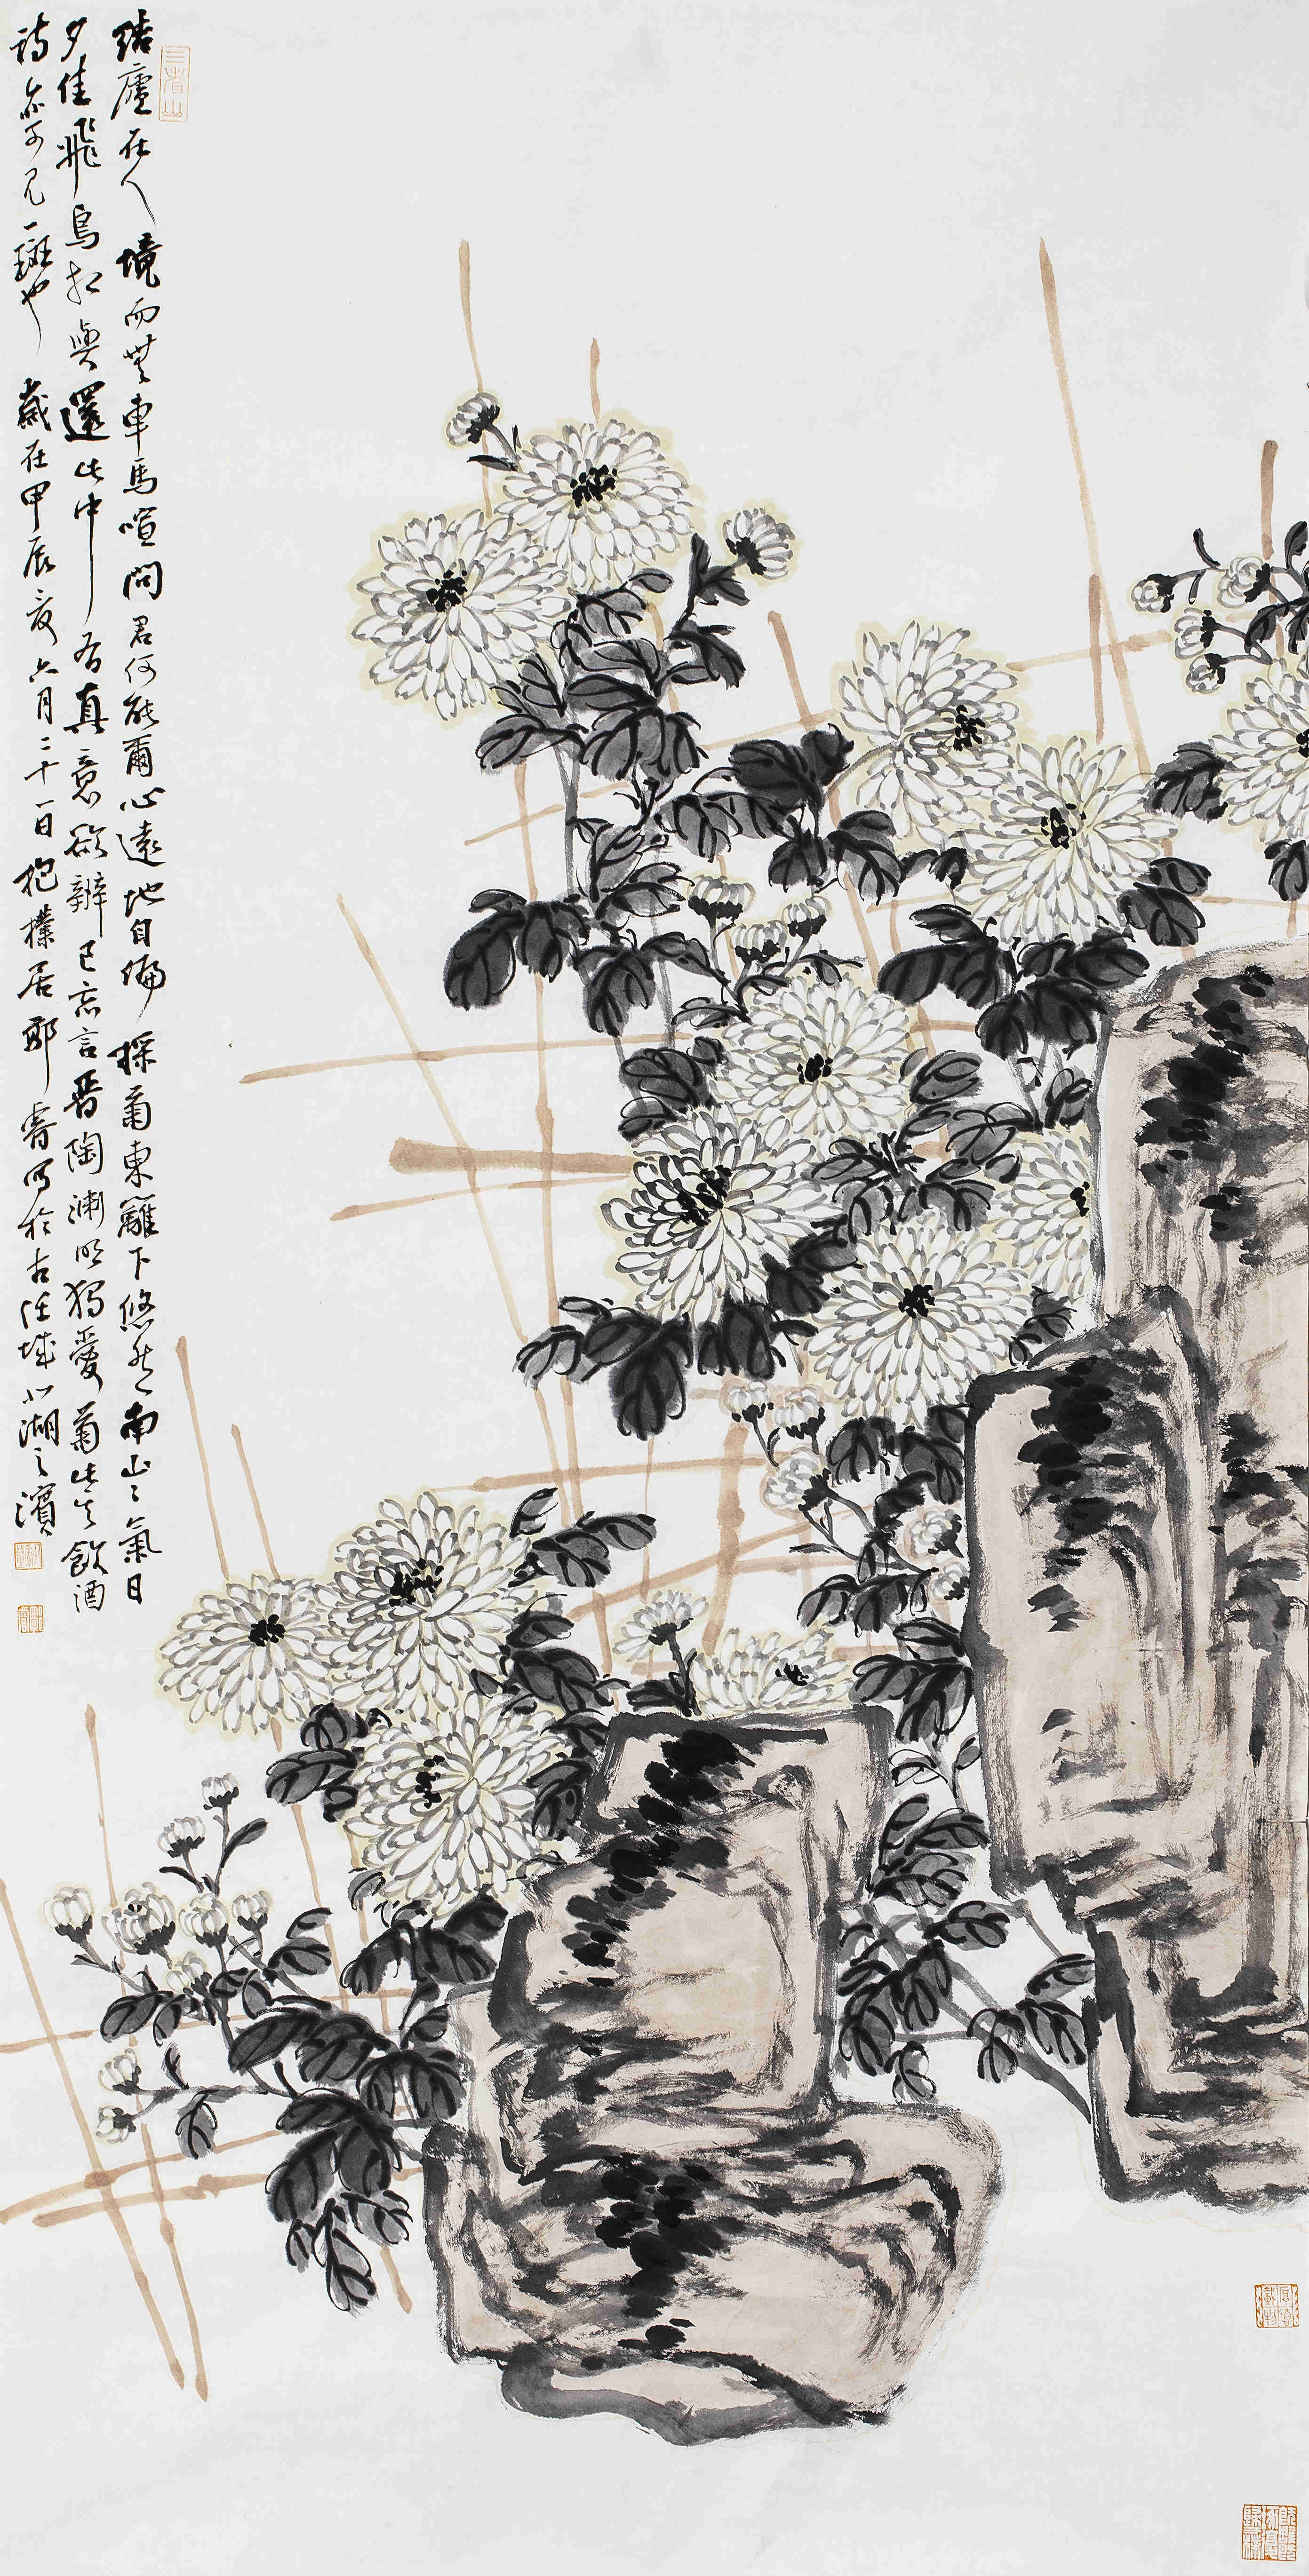 結廬在人境而無車馬喧問君何能爾心遠地自偏採菊東籬下悠然南山山氣日
夕佳飛鳥相與還此中有真意欲辨已忘言晉陶淵明獨愛菊此其飲酒
詩亦可見一斑也 歲在甲辰夏六月二十一日抱樸居 睿寫於古任城北湖之濱